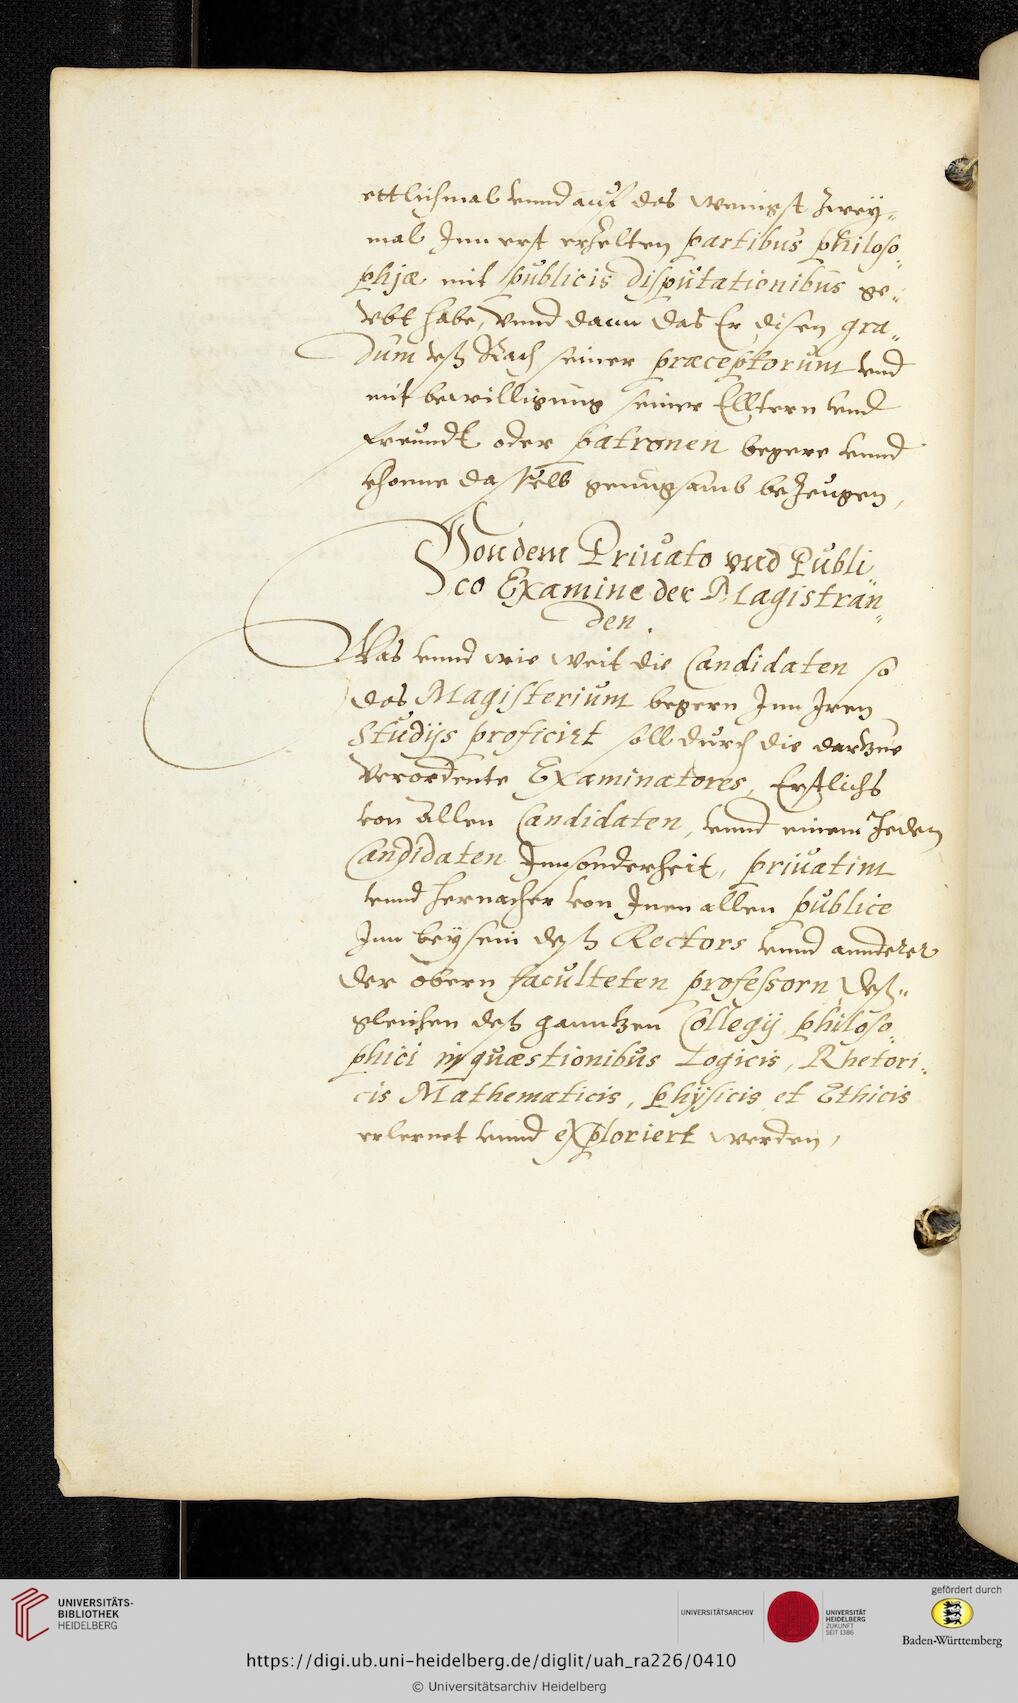 ettlichmal vnnd auf das wenigst zwey„
mal Inn erst erzelten partibus philoso„
phiæ mit publicis disputationibus ge„
vbt habe, vnnd dann das Er disen gra„
dum vß Rath seiner præceptorum vnd
mit bewilligung seiner Elltern vnd
freundt oder patronen begere vnnd
khonne dasselb genugsamb bezeugen,
Von dem Priuato vnd Publi„
co Examine der Magistran„
den.
Was vnnd wie weit die Candidaten so
das Magisterium begern Inn Iren
Studijs proficirt soll durch die darzue
verordente Examinatores, Erstlichs
von allen Candidaten, vnnd einem Jeden
Candidaten Innsonderheit, priuatim
vnnd hernacher von Inen allen publice
Inn beysein deß Rectors vnnd annderer
der obern faculteten professorn, deß„
gleichen deß ganntzen Collegij philoso„
phici in quæstionibus Logicis, Rhetori„
cis Mathematicis, physicis et Ethicis
erlernet vnnd exploriert werden,
UNIVERSITÄTS-
BIBLIOTHEK
HEIDELBERG
UNIVERSITÄTSARCHIV
UNIVERSITÄT
HEIDELBERG
ZUKUNFT
SEIT 1386
gefördert durch
Baden-Württemberg
https://digi.ub.uni-heidelberg.de/diglit/uah_ra226/0410
© Universitätsarchiv Heidelberg